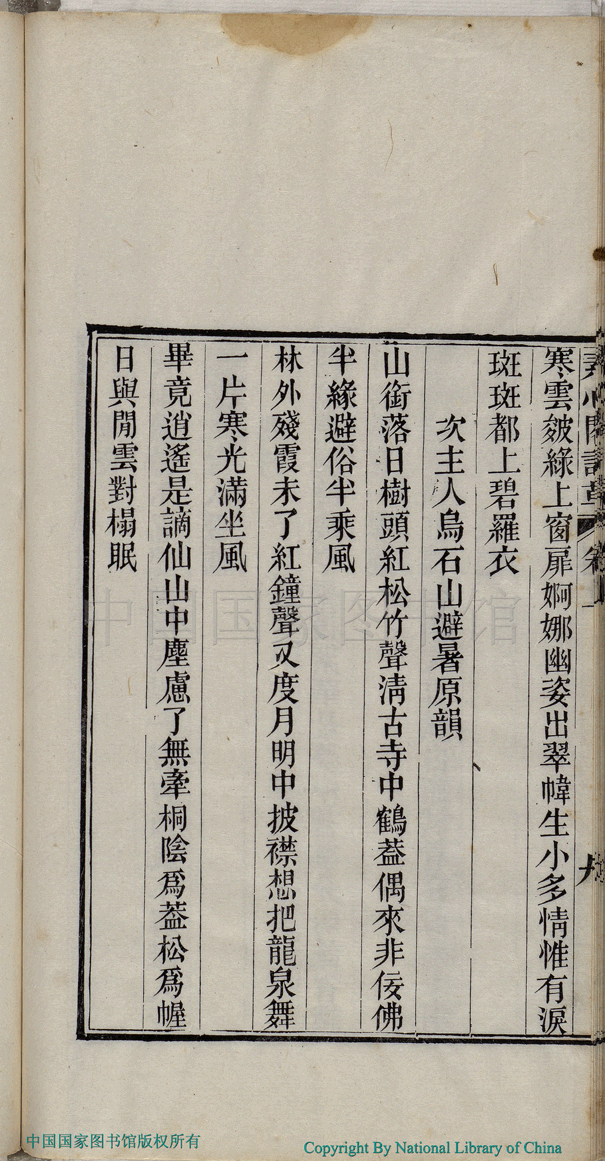 寒雲皴綠上窗扉婀娜幽姿出翠幃生小多情惟有淚
斑斑都上碧羅衣
次主人烏石山避暑原韻
山銜落日樹頭紅松竹聲淸古寺中鶴葢偶來非佞佛
半緣避俗半乘風
林外殘霞未了紅鐘聲又度月明中披襟想把龍泉舞
一片寒光滿坐風
畢竟逍遙是謫仙山中塵慮了無牽桐陰爲葢松爲幄
日與閒雲對榻眠
中国国家图书馆
中国国家图书馆版权所有
Copyright By National Library of China